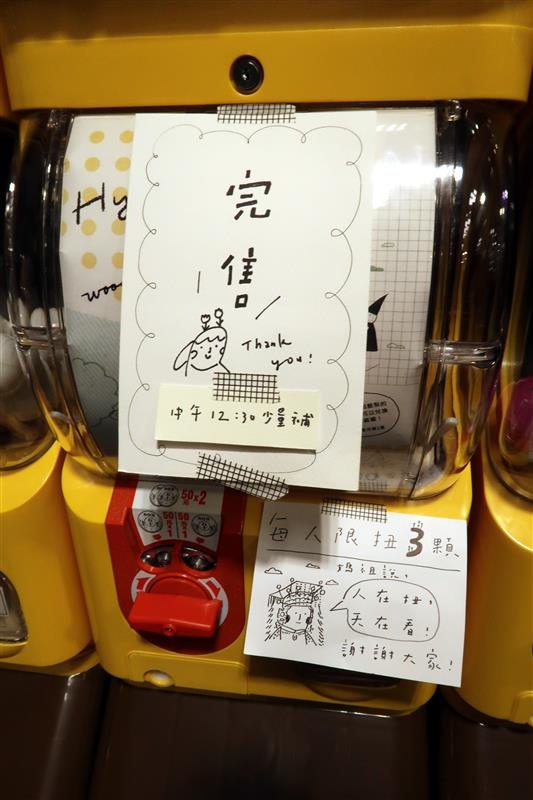 Hy
woo
完售
Thank
you!
中午12:30少量補
50x2
50
50
每人限扭3顆
媽祖說,
人在扭,
天在看!
謝謝大家!